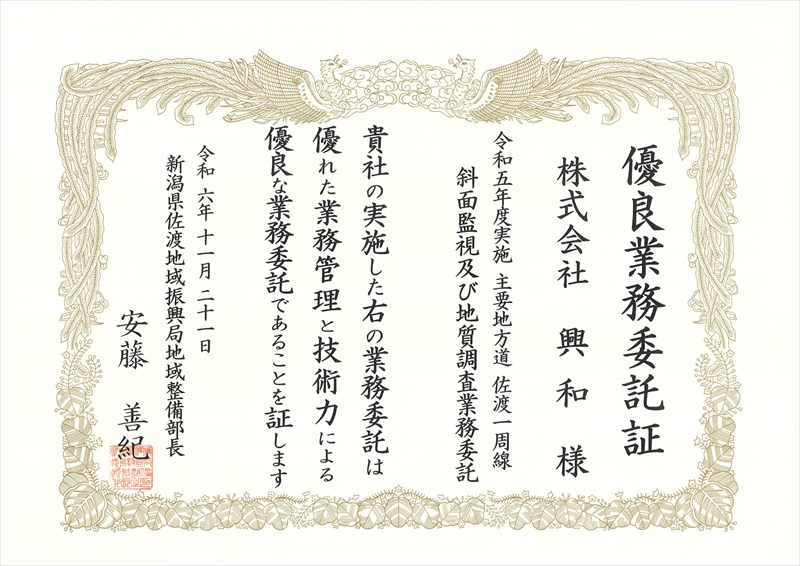 優良業務委託証
株式会社 興和 様
令和五年度実施 主要地方道 佐渡一周線
斜面監視及び地質調査業務委託
貴社の実施した右の業務委託は
優れた業務管理と技術力による
優良な業務委託であることを証します
令和 六年 十一月 二十一日
新潟県佐渡地域振興局地域整備部長
安藤 善紀